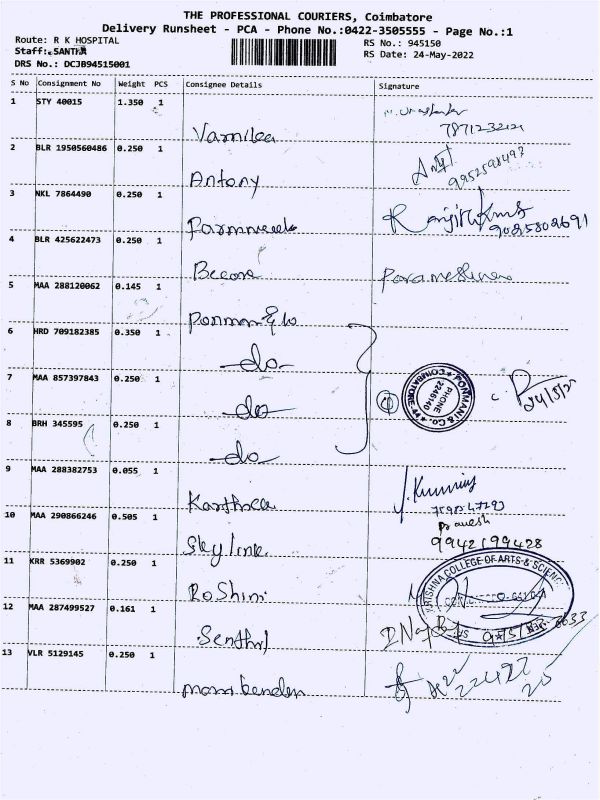 THE PROFESSIONAL COURIERS, Coimbatore
Delivery Runsheet - PCA - Phone No.:0422-3505555 - Page No.:1
Route: R K HOSPITAL
RS No.: 945150
Staff: SANTHA
RS Date: 24-May-2022
DRS No.: DCJB94515001
S No Consignment No Weight PCS Consignee Details Signature
1 STY 40015 1.350 1
7871232121
Varnika
2 BLR 1950560486 0.250 1
9952598493
Antony
3 NKL 7864490 0.250 1
Ranjith Kms
9025802691
4 BLR 425622473 0.250 1
Becone
5 MAA 288120062 0.145 1
Ponman & co
6 HRD 709182385 0.350 1
-do-
7 MAA 857397843 0.250 1
PONMANI & CO. COIMBATORE
PHONE 2246140
24/5/22
-do-
8 BRH 345595 0.250 1
-do-
9 MAA 288382753 0.055 1
Karthica
10 MAA 290866246 0.505 1
Pravesh
9942199428
Skyline
11 KRR 5369902 0.250 1
KRISHNA COLLEGE OF ARTS & SCIENCE
Roshini
12 MAA 287499527 0.161 1
Senthil
13 VLR 5129145 0.250 1
Manikanden